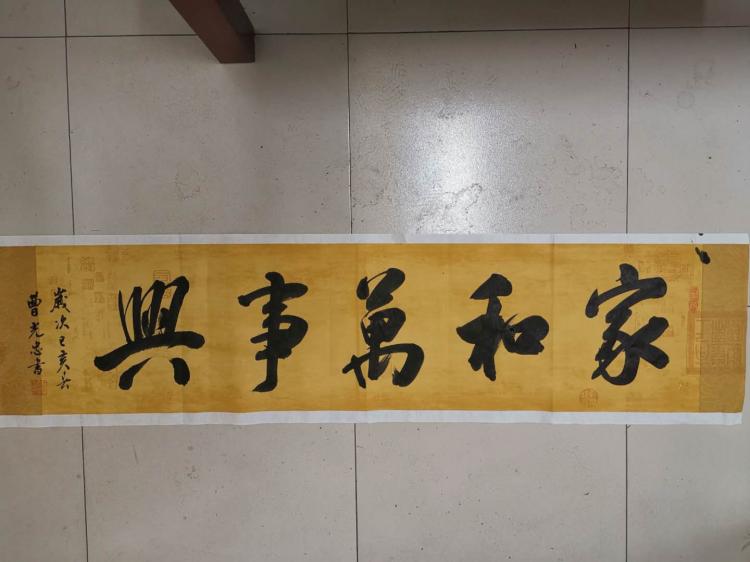 家和萬事興
歲次己亥長
曹光忠書